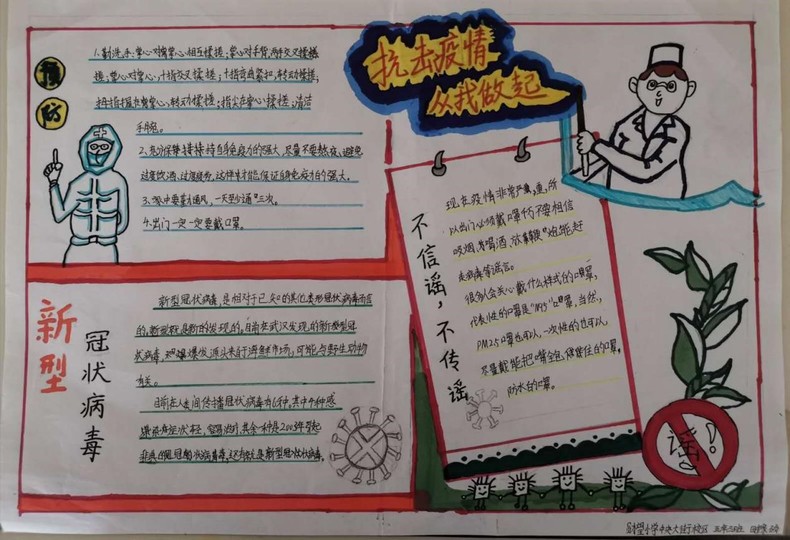 抗击疫情
从我做起
预防
1.勤洗手:掌心对掌心相互揉搓;掌心对手背,两手交叉揉搓
搓;掌心对掌心,十指交叉揉搓;十指弯曲紧扣,转动揉搓;
拇指握在掌心,转动揉搓;指尖在掌心揉搓;清洁
手腕。
2.
保持自身免疫力的强大,尽量不要熬夜,避免
过度饮酒,过度疲劳,这样才能保证自身免疫力的强大。
3.家中要多通风,一天至少通三次。
4.出门一定一定要戴口罩。
不信谣,不传谣
现在疫情非常严重,所
以出门必须戴口罩不要相信
吸烟、喝酒、放鞭炮能赶
走病毒等谣言。
很多人会关心戴什么样式的口罩,
代表性的口罩是"N95"口罩,当然,
PM2.5口罩也可以,一次性的也可以,
尽量戴能把口鼻全包
住的口罩,
防水的口罩。
新型
冠状病毒
新型冠状病毒,是相对于已知的其他类型冠状病毒而言
的,新型就是新的发现的,目前在武汉发现的新型冠
状病毒
爆发源头来于海鲜市场,可能与野生动物
有关。
目前在人世间传播冠状病毒有6种,其中有种感
染后症状轻,
其余一种是2003年引起
非典的
冠状病毒,还有就是新型冠状病毒。
谣!
小学中央大街校区